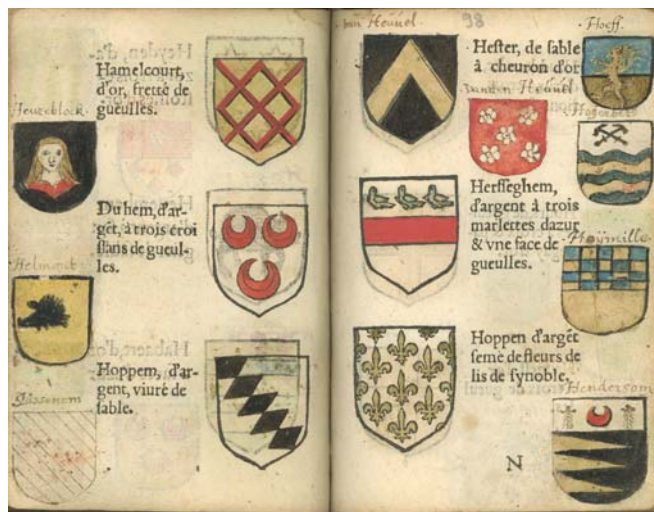 Hamelcourt,
d'or, frette de
gueulles.
Heuteblock.
Du hem, d'ar-
gēt, à trois croi
ssans de gueul-
les.
Helmont.
Hoppem, d'ar-
gent, viure de
sable.
van Heuuel.
98
Hoeff.
Hester, de sable
à cheuron d'or
vanden Heuuel
Herssegehem,
d'argent à trois
marlettes dazur
& vne face de
gueulles.
Hoÿmille
Hoppen d'argēt
semé de fleurs de
lis de synoble,
Hendersom
N